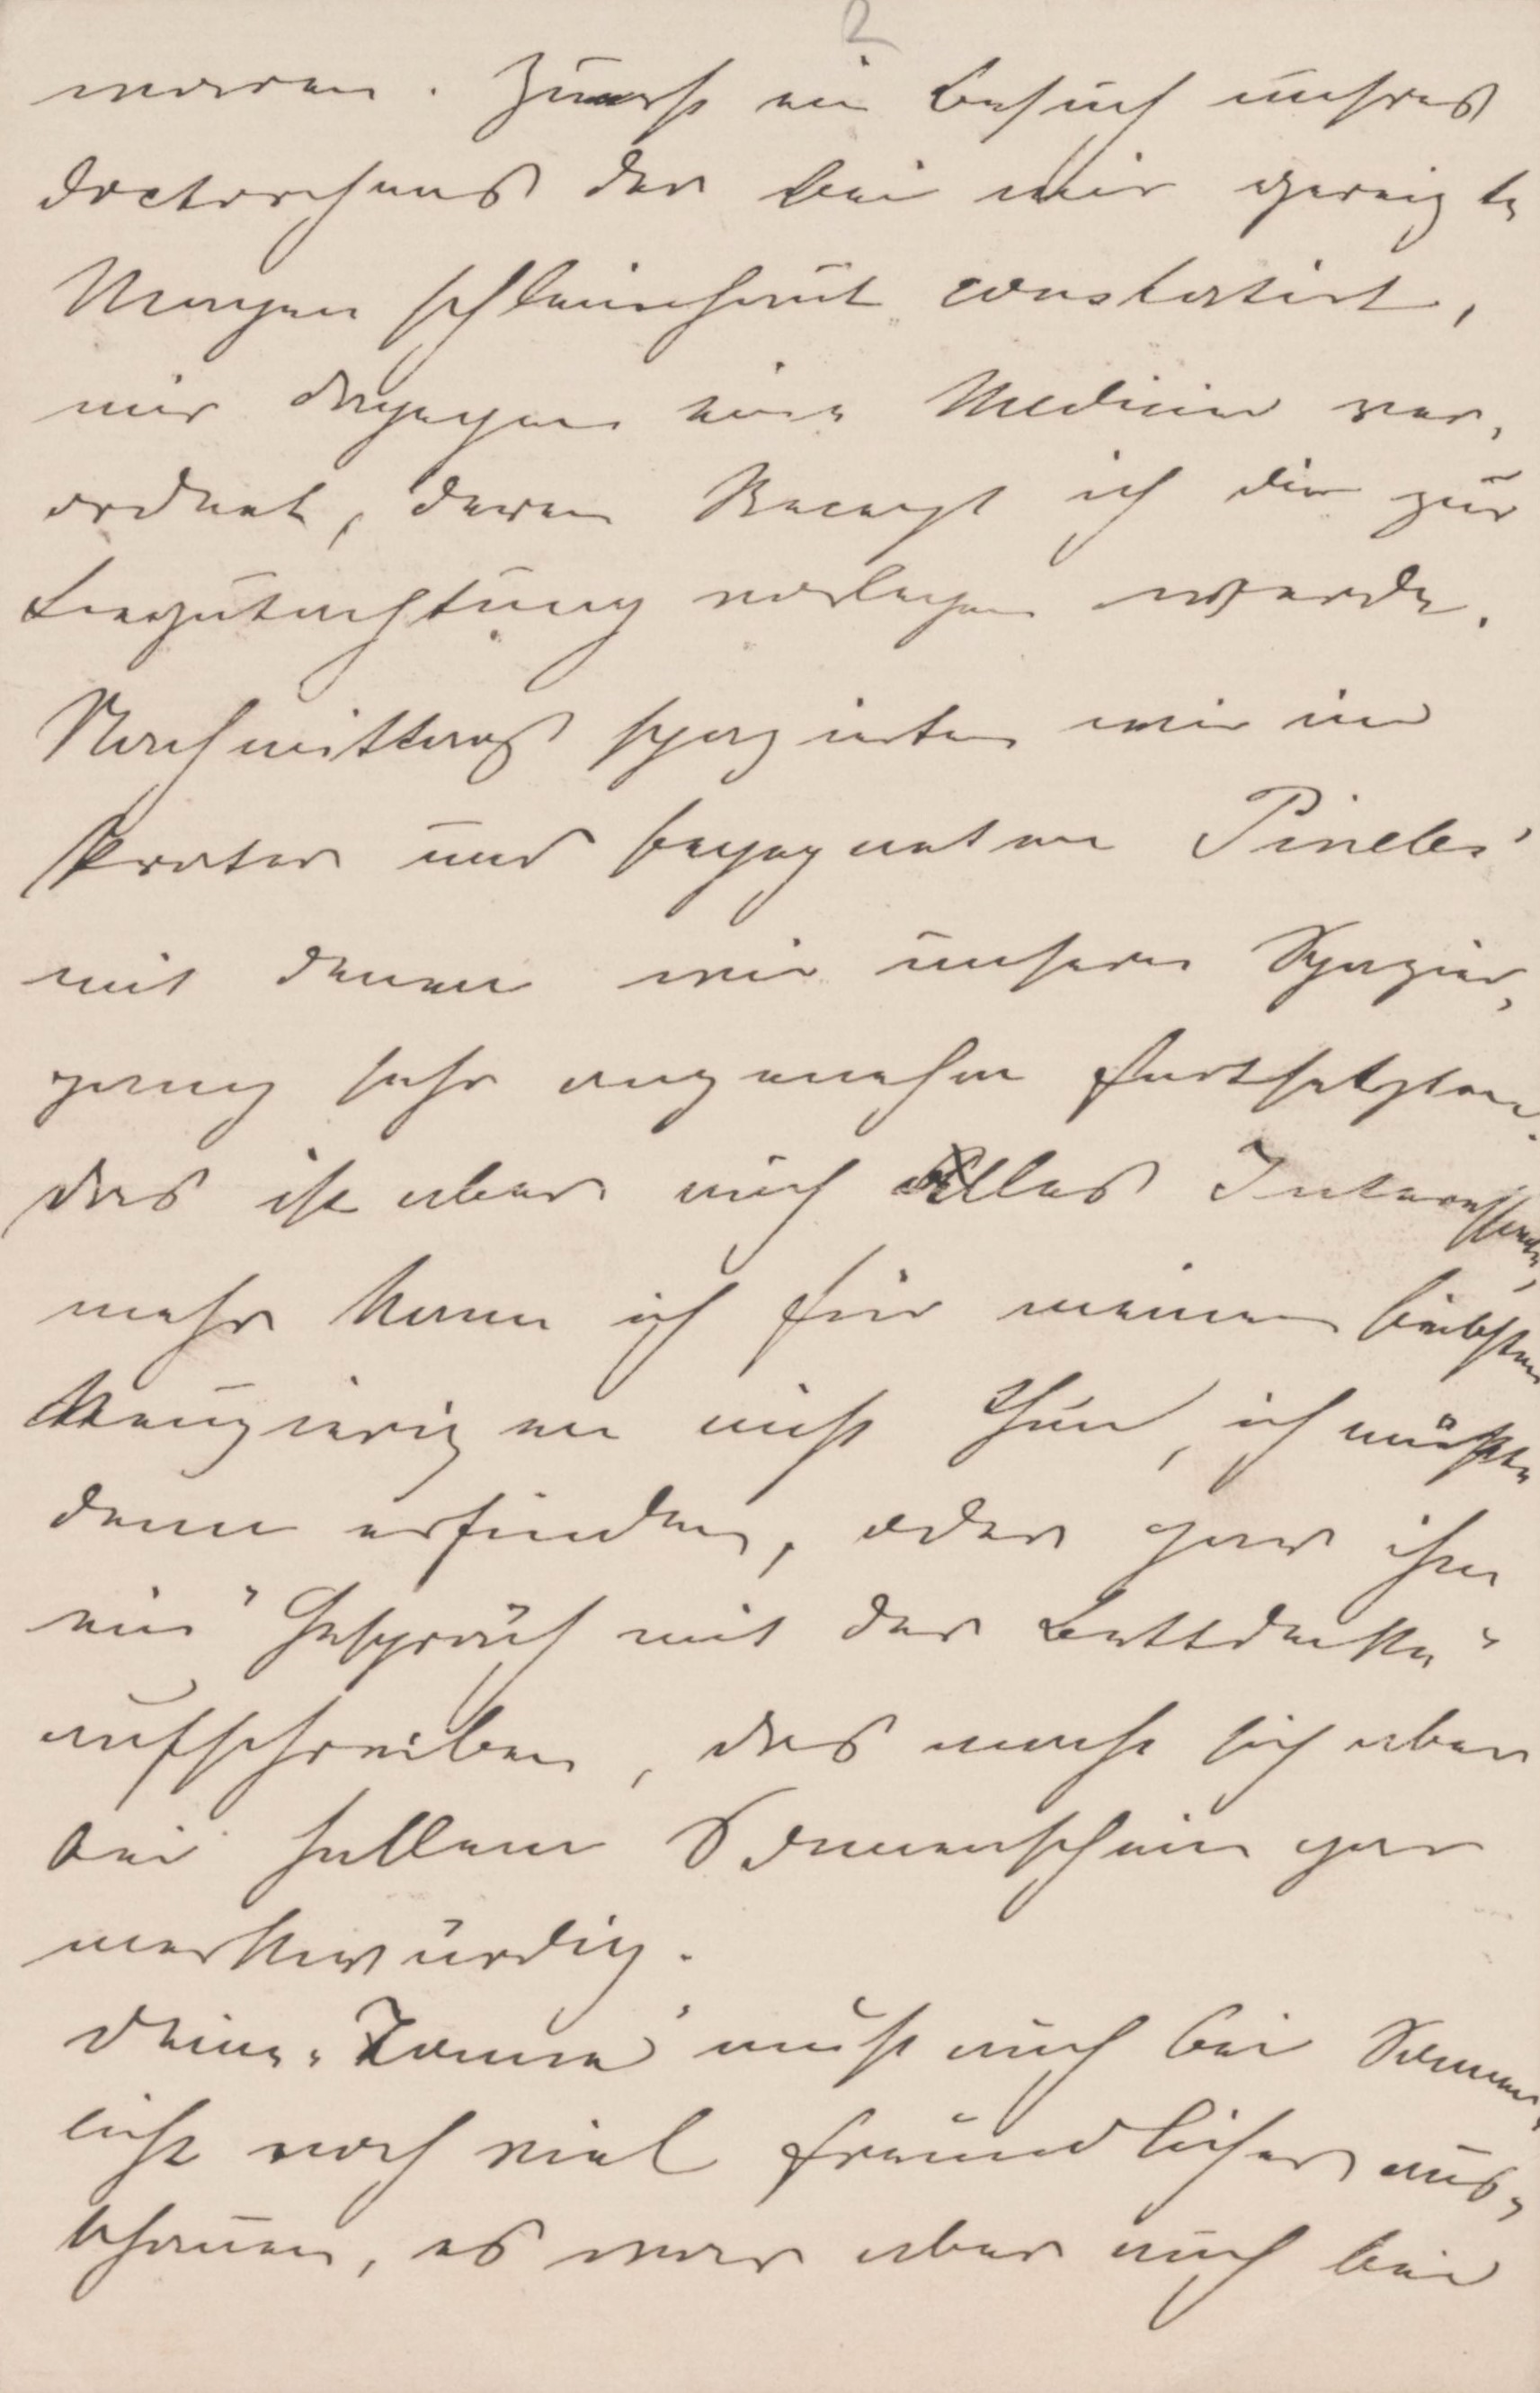 2
waren. Zuerst ein Besuch unsres
Doctorchens der bei mir gereizte
Magenschleimhaut constatirt,
mir dagegen eine Medicin ver-
ordnet, deren Recept ich dir zur
Begutachtung vorlegen werde.
Nachmittags spazirten wir im
Prater und begegneten Pineles'
mit denen wir unseren Spazier-
gang sehr angenehm fortsetzten.
das ist aber auch Alles Interessante,
mehr kann ich für meinen liebsten
Neugierigen nicht thun, ich müßte
denn erfinden, oder gar ihm
ein "Gespräch mit der Bettdecke"
aufschreiben, das macht sich aber
bei hellem Sonnenschein gar
merkwürdig.
Deine muß auch bei Sonnen-
licht noch viel freundlicher aus-
schauen, es war aber auch bei